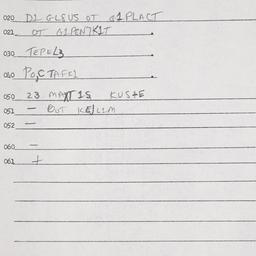 020 D1 GLEUS OT G1PLACT
021 OT G1PENTKIT
030 TEPEL3
040 POCTAFEJ
050 23 MATT1S KUSTE
051 - OUT
052 -
060 -
061 +